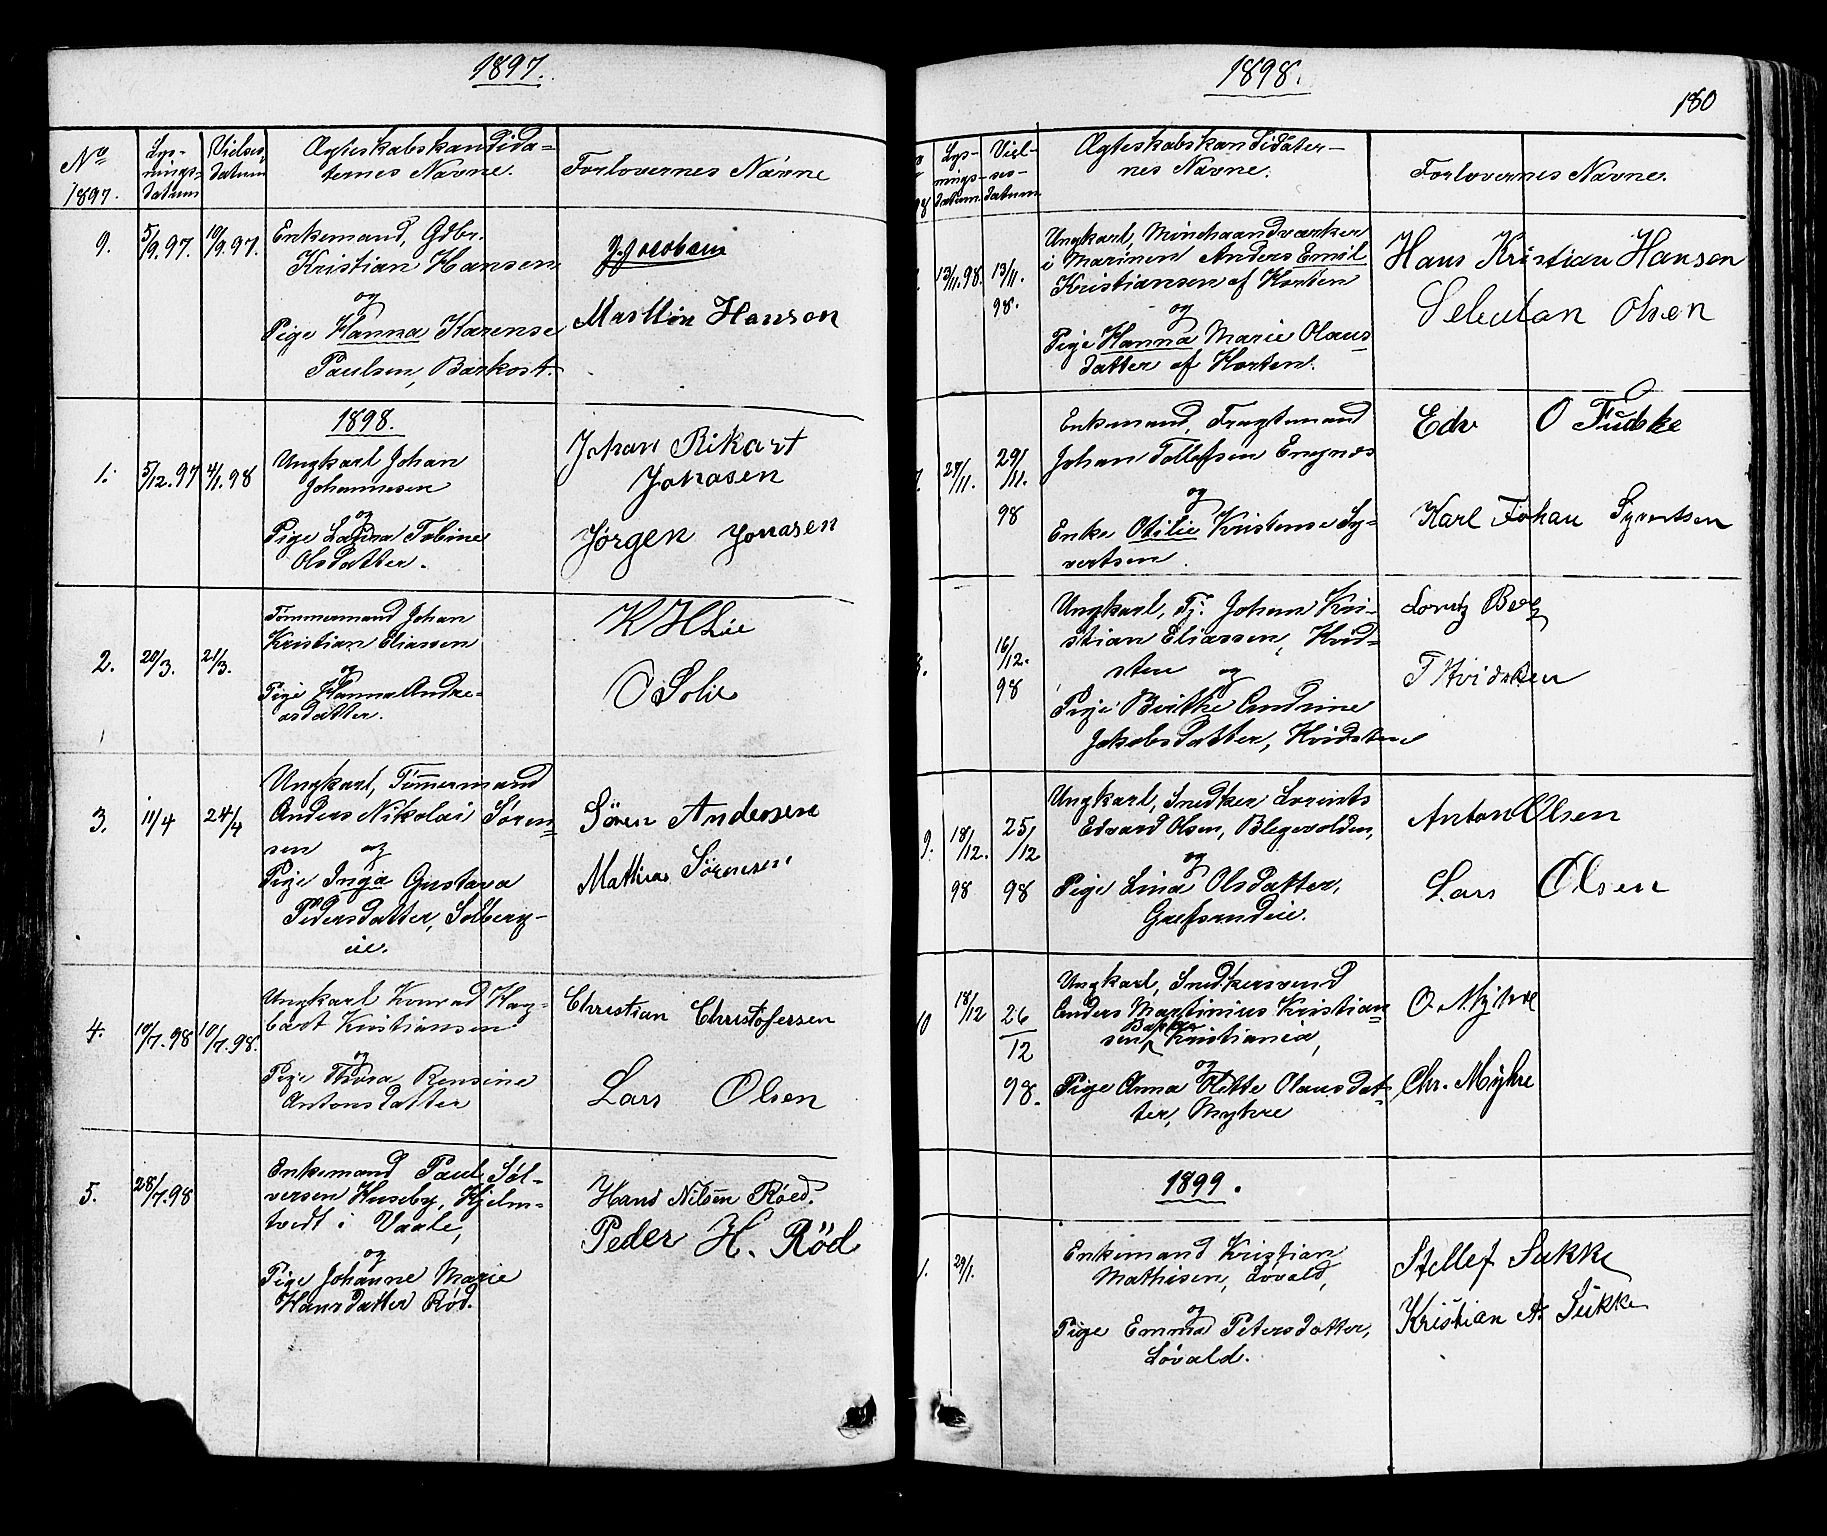 1897.
No
1897.
Lys-
nings-
datum
Vielses-
datum
Ægteskabskandida-
ternes Navne.
Forlovernes Navne
9.
5/9.97.
10/9.97.
Enkemand, Gdbr.
Kristian Hansen
og
Pige Hanna Karense
Paulsen, Barkost.
J. Jacobsen
Hanson
1898.
1.
5/12.97
4/1.98
Ungkarl Johan
Johannesen
og
Pige Tobine
Olsdatter.
Johan Rikart
Jonasen
Jørgen Jonasen
2.
20/3.
21/3.
Tømmermand Johan
Kristian Eliassen
og
Pige Hanna Andre-
asdatter.
K H Lie
O Solie
3.
11/4
24/4
Ungkarl, Tømmermand
Anders Nikolai Søren-
sen og
Pige Inga Gustava
Pedersdatter, Solberg-
eie.
Søren Andersen
Mathias Sørensen
4.
10/7.98
10/7.98.
Ungkarl Konrad Hag-
bart Kristiansen
og
Pige Thora Rensine
Antonsdatter
Christian Christofersen
Lars Olsen
5.
28/7.98
Enkemand Paul Søl-
versen Huseby, Hjelm-
tvedt i Vaale,
og
Pige Johanne Marie
Hansdatter Rød.
Hans Nilsen Røed.
Peder H. Rød
1898.
180
98
Lys-
nings-
datum.
Viel-
ses-
datum
Ægteskabskandidater-
nes Navne.
Forlovernes Navne.
13/11.98.
13/11.
98.
Ungkarl, Minehaandværker
i Marinen Anders Emil
Kristiansen af Horten
og
Pige Hanna Marie Olaus-
datter af Horten.
Hans Kristian Hansen
Olsen
7.
27/11.
29/11.
98
Enkemand, Fragtemand
Johan Tollefsen Engnæs
og
Enke Otilie Kristense Sy-
vertsen.
Edv O
Karl Johan Syvertsen
8.
16/12.
98
Ungkarl, Tj. Johan Kri-
stian Eliassen, Hvid-
sten og
Pige Birthe Andrine
Jakobsdatter, Hvidsten
T Hvidsten
9.
18/12.
98
25/12
98
Ungkarl, Snedker Lorents
Edvard Olsen, Blegevolden,
og
Pige Lina Olsdatter,
Anton Olsen
Lars Olsen
10
18/12
26/12
98.
Ungkarl, Snedkersvend
Anders Martinius Kristian-
sen, Kristiania,
og
Pige Anna Olausdat-
ter, Myhre
O. Myhre
Chr. Myhre
1899.
1.
29/1.
Enkemand Kristian
Mathisen, Løvald,
og
Pige Emma Petersdatter,
Løvald.
Stellef Sukke
Kristian A. Sukke